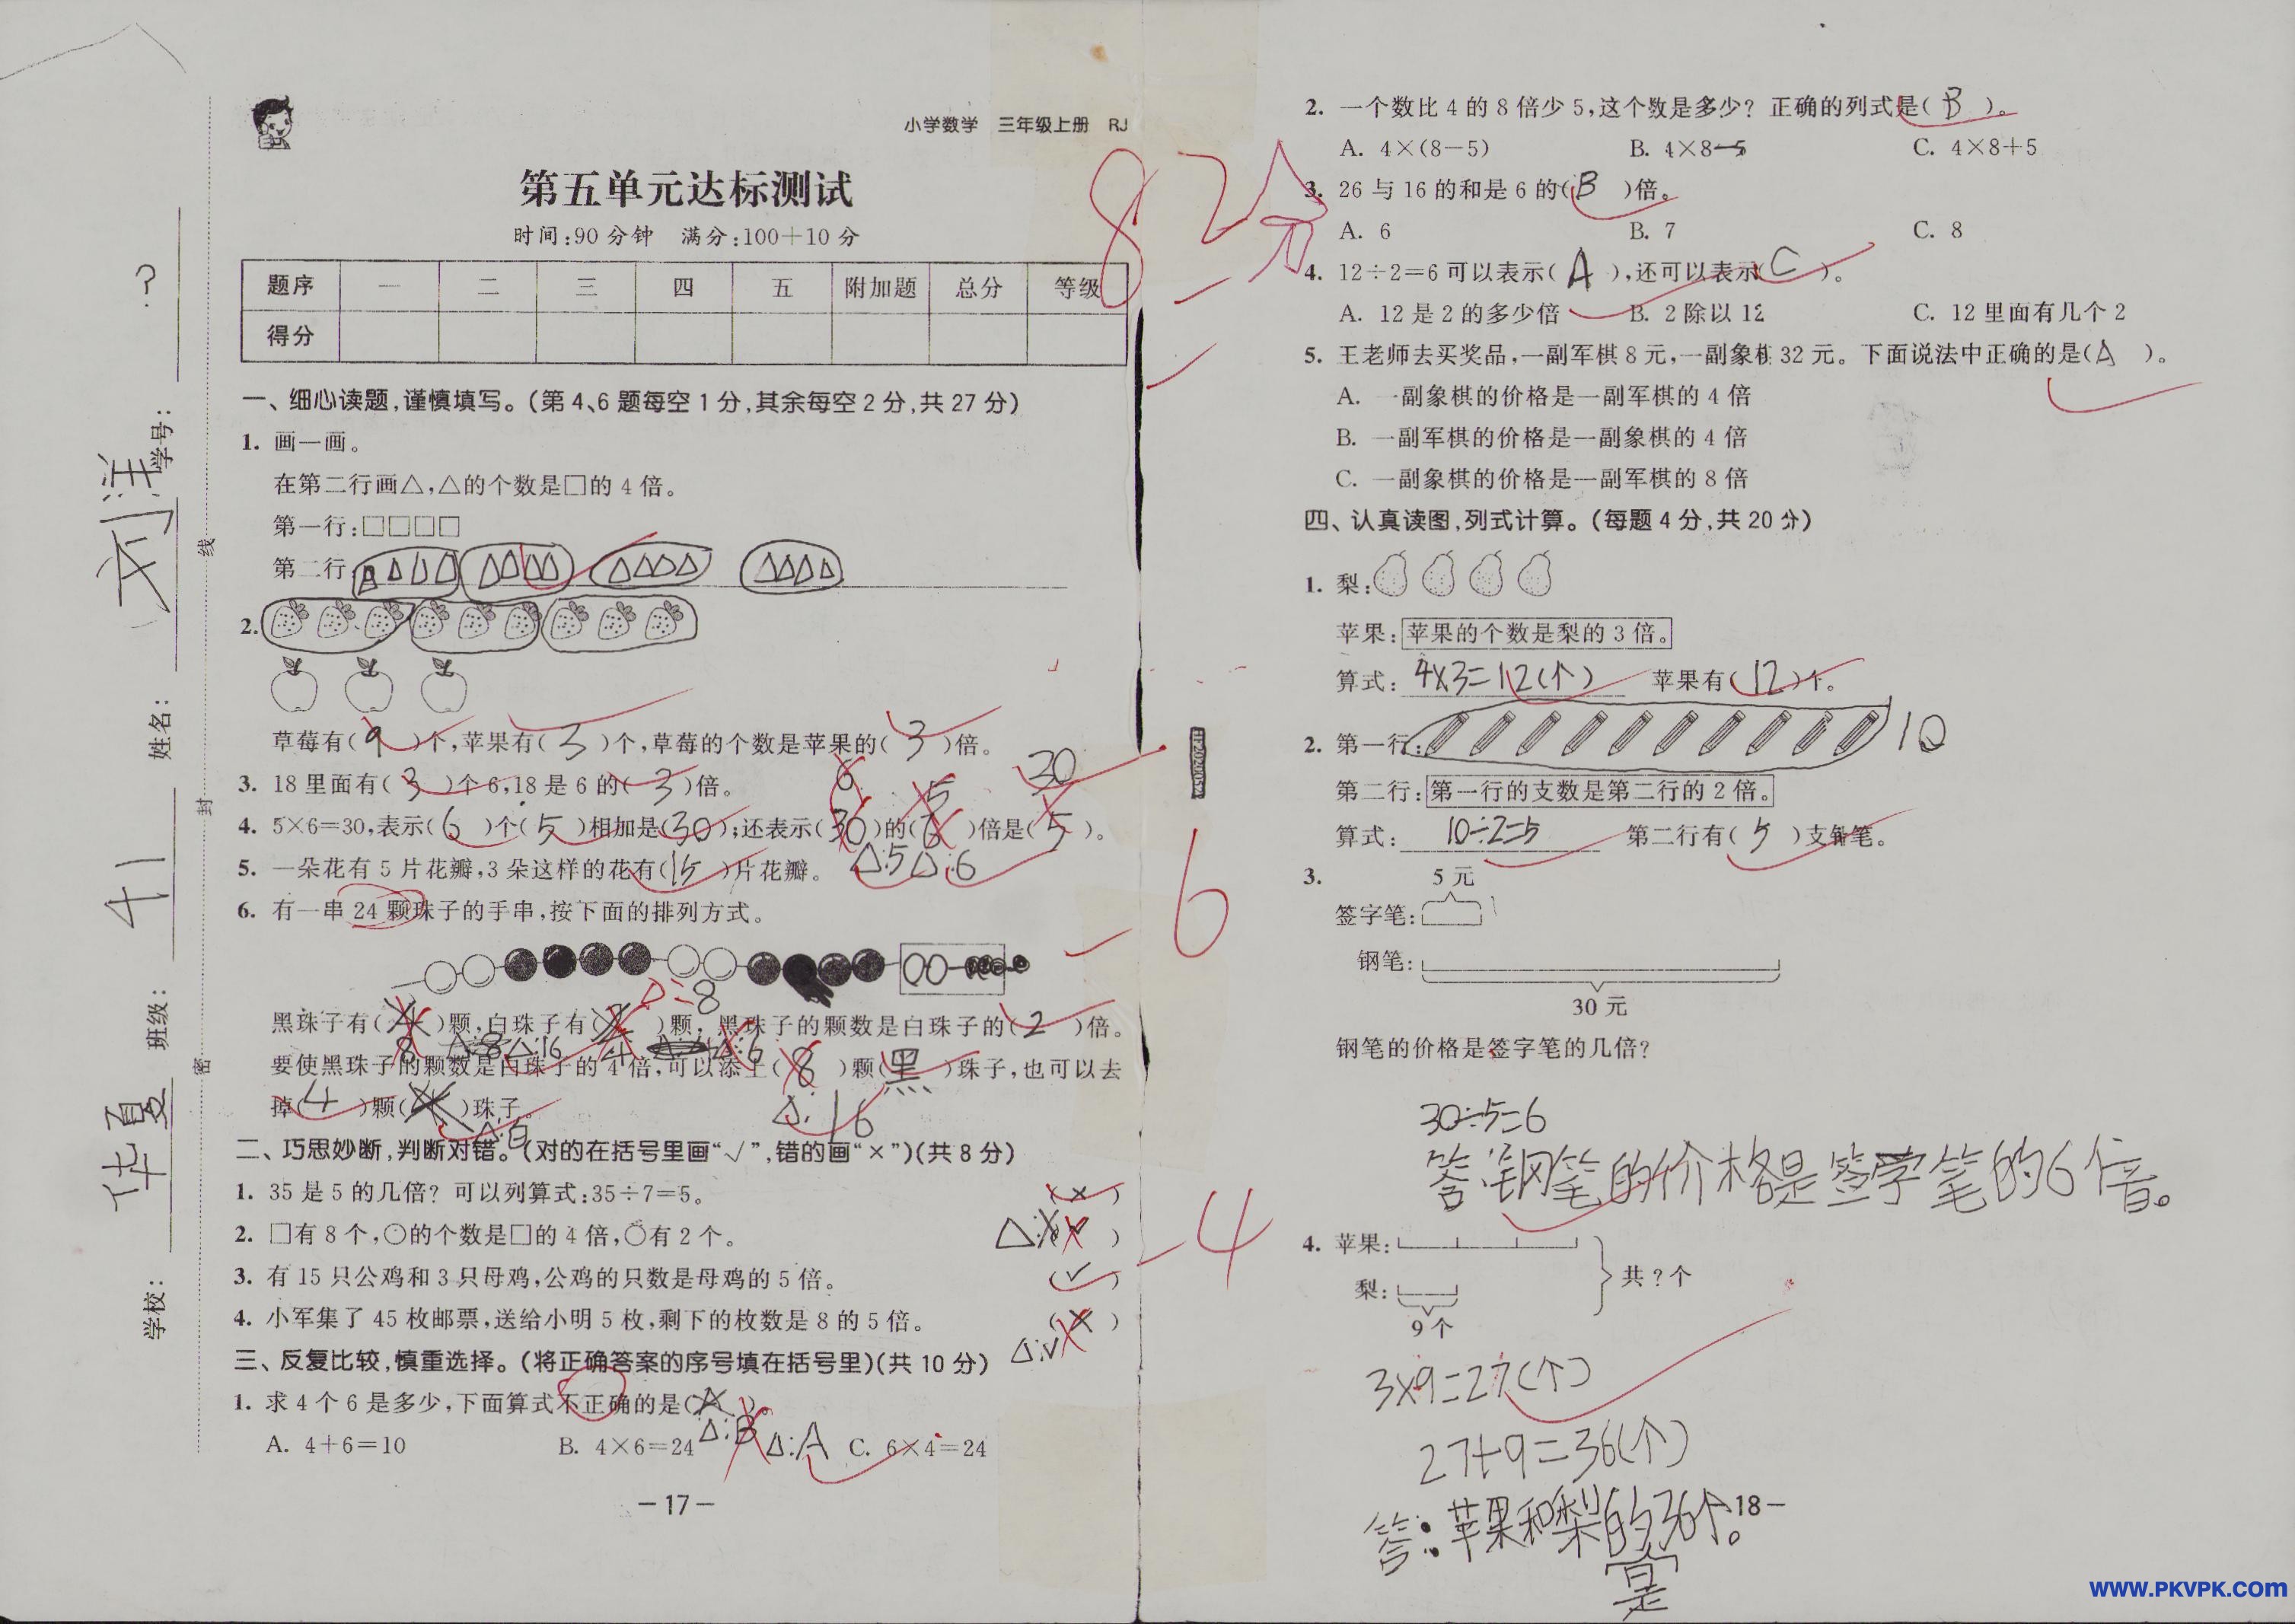 小学数学 三年级上册 RJ
第五单元达标测试
时间:90分钟 满分:100+10分
题序 一 二 三 四 五 附加题 总分 等级
得分
82分
学校: 华夏 班级: 41 姓名: 刘洋 学号: ?
密 封 线
一、细心读题,谨慎填写。(第4、6题每空1分,其余每空2分,共27分)
1. 画一画。
在第二行画△,△的个数是□的4倍。
第一行:□□□□
第二行:△△△△ △△△△ △△△△ △△△△
2.
草莓有(9)个,苹果有(3)个,草莓的个数是苹果的(3)倍。
3. 18里面有(3)个6,18是6的(3)倍。
6 5 30
4. 5×6=30,表示(6)个(5)相加是(30);还表示(30)的(6)倍是(5)。
△:5△:6
5. 一朵花有5片花瓣,3朵这样的花有(15)片花瓣。
6. 有一串24颗珠子的手串,按下面的排列方式。
-6
△:8
黑珠子有(4)颗,白珠子有(2)颗,黑珠子的颗数是白珠子的(2)倍。
8 △:8△:16 4
要使黑珠子的颗数是白珠子的4倍,可以添上(8)颗(黑)珠子,也可以去
掉(4)颗( )珠子。
△:白 △:16
二、巧思妙断,判断对错。(对的在括号里画“√”,错的画“×”)(共8分)
1. 35是5的几倍?可以列算式:35÷7=5。 (×)
2. □有8个,○的个数是□的4倍,○有2个。 △:×( )
-4
3. 有15只公鸡和3只母鸡,公鸡的只数是母鸡的5倍。 (√)
4. 小军集了45枚邮票,送给小明5枚,剩下的枚数是8的5倍。 (×)
△:√
三、反复比较,慎重选择。(将正确答案的序号填在括号里)(共10分)
1. 求4个6是多少,下面算式不正确的是(A)。
△:B △:A
A. 4+6=10 B. 4×6=24 C. 6×4=24
-17-
2. 一个数比4的8倍少5,这个数是多少?正确的列式是(B)。
A. 4×(8-5) B. 4×8-5 C. 4×8+5
3. 26与16的和是6的(B)倍。
A. 6 B. 7 C. 8
4. 12÷2=6可以表示(A),还可以表示(C)。
A. 12是2的多少倍 B. 2除以12 C. 12里面有几个2
5. 王老师去买奖品,一副军棋8元,一副象棋32元。下面说法中正确的是(A)。
A. 一副象棋的价格是一副军棋的4倍
B. 一副军棋的价格是一副象棋的4倍
C. 一副象棋的价格是一副军棋的8倍
四、认真读图,列式计算。(每题4分,共20分)
1. 梨:
苹果:苹果的个数是梨的3倍。
算式:4×3=12(个) 苹果有(12)个。
2. 第一行: 10
第二行:第一行的支数是第二行的2倍。
算式:10÷2=5 第二行有(5)支铅笔。
3. 5元
签字笔:
钢笔:
30元
钢笔的价格是签字笔的几倍?
30÷5=6
答:钢笔的价格是签字笔的6倍。
4. 苹果:
共?个
梨:
9个
3×9=27(个)
27+9=36(个)
答:苹果和梨的36个。
是
-18-
www.PKVPK.com